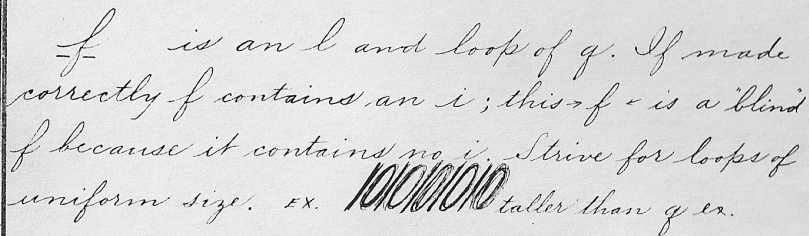 f is an l and loop of q. If made
correctly f contains an i; this → f ← is a "blind"
f because it contains no i. Strive for loops of
uniform size. Ex. taller than q ex.